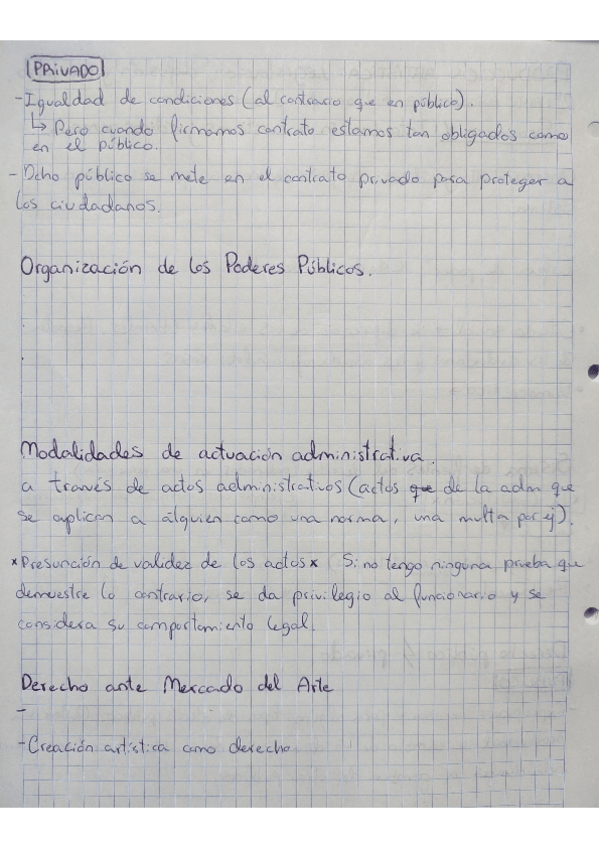 PRIVADO
- Igualdad de condiciones (al contrario que en público).
↳ Pero cuando firmamos contrato estamos tan obligados como
en el público.
- Dcho público se mete en el contrato privado para proteger a
los ciudadanos.
Organización de los Poderes Públicos.
Modalidades de actuación administrativa.
a través de actos administrativos (actos que de la adm que
se aplican a alguien como una norma, una multa por ej).
*Presunción de validez de los actos* Si no tengo ninguna prueba que
demuestre lo contrario, se da privilegio al funcionario y se
considera su comportamiento legal.
Derecho ante Mercado del Arte
-
- Creación artística como derecho